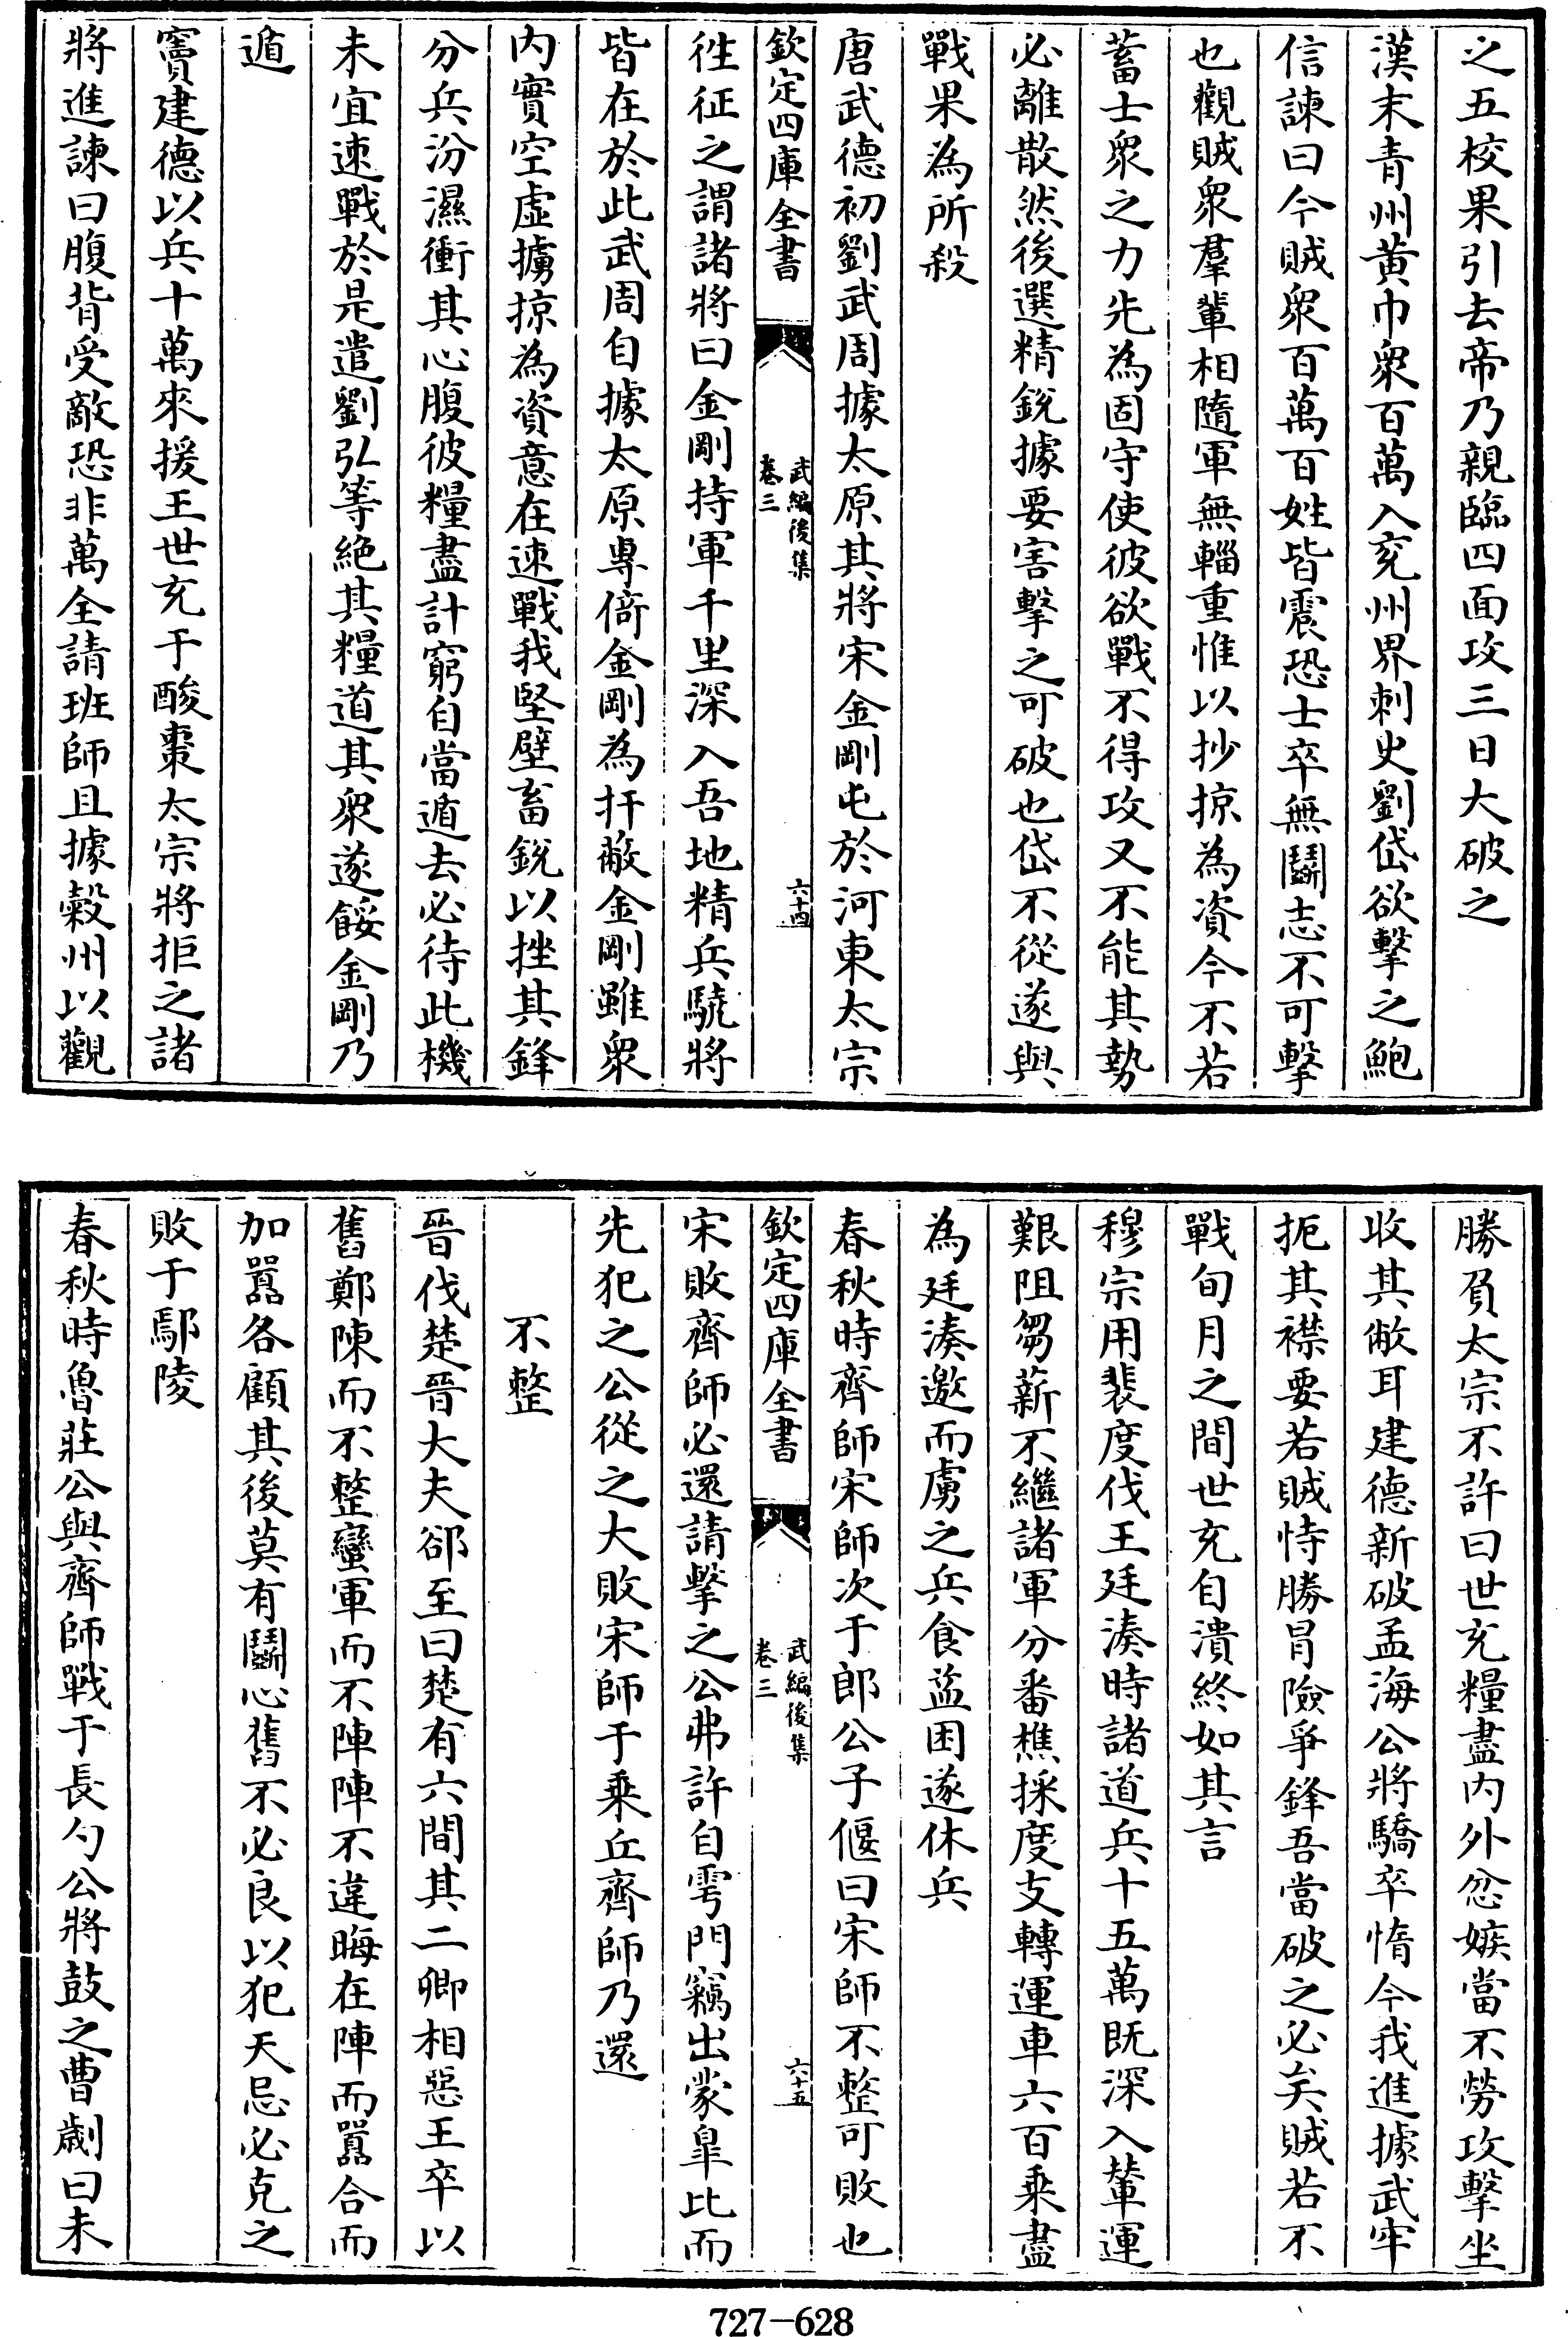 之五校果引去帝乃親臨四面攻三日大破之
漢末青州黄巾衆百萬入兖州界刺史劉岱欲擊之鮑
信諫曰今賊衆百萬百姓皆震恐士卒無鬭志不可擊
也觀賊衆羣輩相隨軍無輜重惟以抄掠為資今不若
蓄士衆之力先為固守使彼欲戰不得攻又不能其勢
必離散然後選精銳據要害擊之可破也岱不從遂與
戰果為所殺
唐武德初劉武周據太原其將宋金剛屯於河東太宗
欽定四庫全書
武編後集
卷三
六十四
徃征之謂諸將曰金剛持軍千里深入吾地精兵驍將
皆在於此武周自據太原專倚金剛為扞敝金剛雖衆
内實空虚擄掠為資意在速戰我堅壁畜銳以挫其鋒
分兵汾濕衝其心腹彼糧盡計窮自當遁去必待此機
未宜速戰於是遣劉弘等絶其糧道其衆遂餒金剛乃
遁
竇建德以兵十萬來援王世充于酸棗太宗將拒之諸
將進諫曰腹背受敵恐非萬全請班師且據穀州以觀
勝負太宗不許曰世充糧盡内外忿嫉當不勞攻擊坐
收其敝耳建德新破孟海公將驕卒惰今我進據武牢
扼其襟要若賊恃勝冐險爭鋒吾當破之必矣賊若不
戰旬月之間世充自潰終如其言
穆宗用裴度伐王廷湊時諸道兵十五萬既深入輦運
艱阻芻薪不繼諸軍分番樵採度支轉運車六百乗盡
為廷湊邀而虜之兵食益困遂休兵
春秋時齊師宋師次于郎公子偃曰宋師不整可敗也
欽定四庫全書
武編後集
卷三
六十五
宋敗齊師必還請擊之公弗許自雩門竊出蒙臯比而
先犯之公從之大敗宋師于乗丘齊師乃還
不整
晉伐楚晉大夫郤至曰楚有六間其二卿相惡王卒以
舊鄭陳而不整蠻軍而不陣陣不違晦在陣而囂合而
加囂各顧其後莫有鬭心舊不必良以犯天忌必克之
敗于鄢陵
春秋時魯莊公與齊師戰于長勺公將鼓之曹劌曰未
727-628